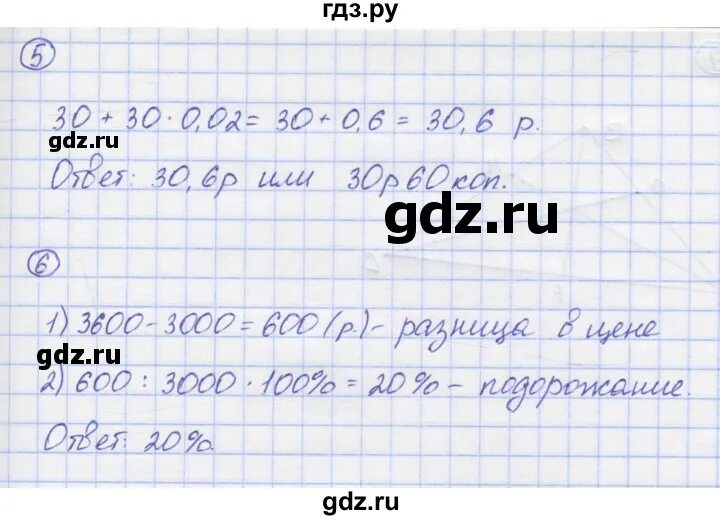 гдз.ру
5
30 + 30 · 0,02 = 30 + 0,6 = 30,6 р.
gdz.ru
Ответ: 30,6р или 30р 60 коп.
gdz.ru
6
1) 3600 - 3000 = 600 (р.) - разница в цене
gdz.ru
2) 600 : 3000 · 100% = 20% - подорожание.
Ответ: 20%.
gdz.ru